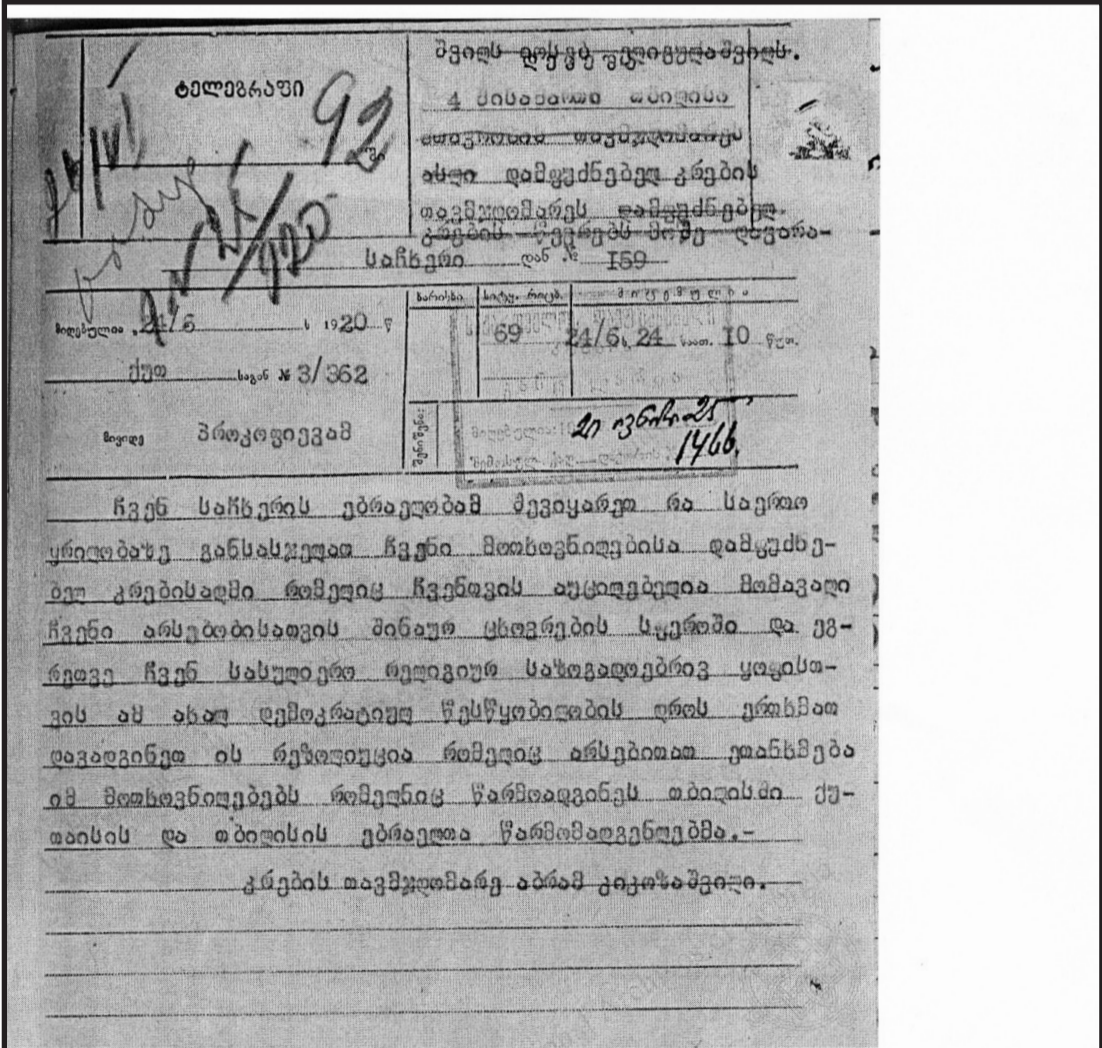 შვილს იოსებ ელიგულაშვილს.
ტელეგრაფი
92
4 მისამართი თბილისი
მთავრობის თავმჯდომარეს
ასლი დამფუძნებელ კრების
თავმჯდომარეს დამფუძნებელ
კრების წევრებს მოშე დავარა-
საჩხერი დან № I59
ხარისხი სიტყ. რიცხ. მიცემულია
მიღებულია 24/6 ს 1920 წ
69 24/6 ს 24 საათ. I0 წუთ.
ქუთ საგან № 3/362
მივიღე პროკოფიევამ
შენიშვნა:
21 ივნისი 25
1466.
ჩვენ საჩხერის ებრაელობამ შევიყარეთ რა საერთო
ყრილობაზე განსასჯელათ ჩვენი მოთხოვნილებისა დამფუძნე-
ბელ კრებისადმი რომელიც ჩვენთვის აუცილებელია მომავალი
ჩვენი არსებობისათვის შინაურ ცხოვრების სფეროში და ეგ-
რეთვე ჩვენ სასულიერო რელიგიურ საზოგადოებრივ ყოფისთ-
ვის ამ ახალ დემოკრატიულ წესწყობილობის დროს ერთხმათ
დავადგინეთ ის რეზოლიუცია რომელიც არსებითათ ეთანხმება
იმ მოთხოვნილებებს რომელნიც წარმოადგინეს თბილისში ქუ-
თაისის და თბილისის ებრაელთა წარმომადგენლებმა.-
კრების თავმჯდომარე აბრამ კიკოზაშვილი.